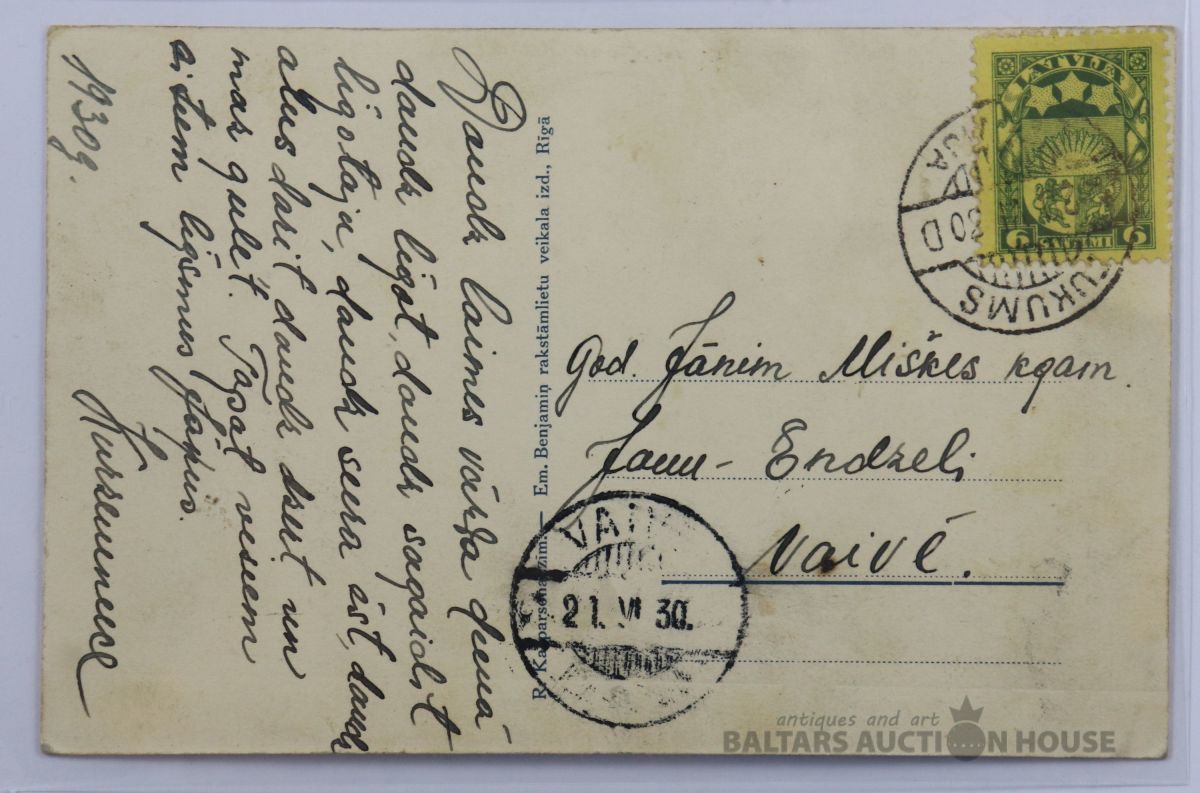 Daudz laimes vārda dienā
daudz līgot, daudz sagaidīt
līgotaju, daudz seera ēst, daudz
alus darīt, daudz dzert un
maz gulēt. Tāpat visiem
citiem līgsmus Jāņus.
Kurzemnece
1930g.
R. Kasparsona zīm. — Em. Benjamiņ rakstāmlietu veikala izd., Rīgā
LATVIJA
6 SANTIMI 6
TUKUMS
30 D
God. Jānim Miškes kgam.
Jaun-Endzeļi
Vaivē.
VAIVE
21. VI 30.
antiques and art
BALTARS AUCTION HOUSE